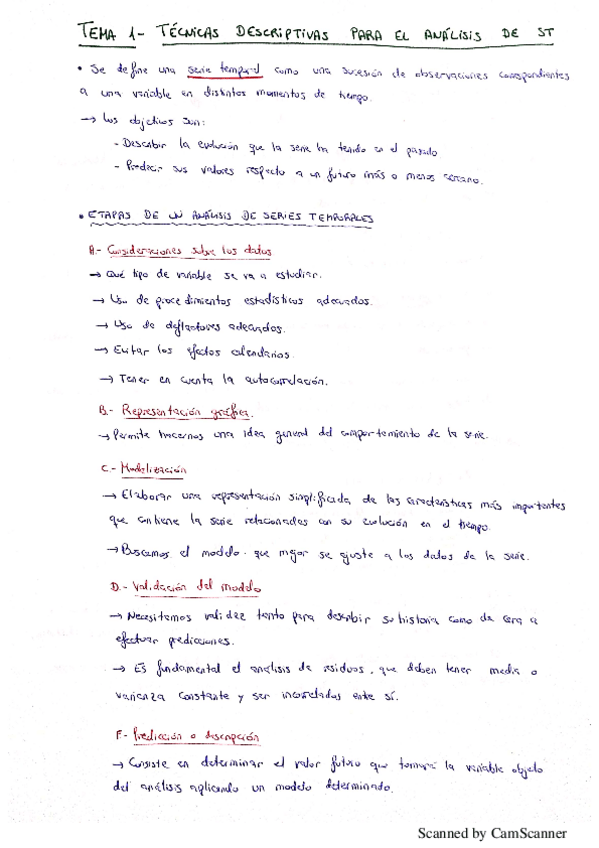 TEMA 1- TÉCNICAS DESCRIPTIVAS PARA EL ANÁLISIS DE ST
• Se define una serie temporal como una sucesión de observaciones correspondientes
a una variable en distintos momentos de tiempo.
→ Los objetivos son:
- Describir la evolución que la serie ha tenido en el pasado
- Predecir sus valores respecto a un futuro más o menos cercano.
• ETAPAS DE UN ANÁLISIS DE SERIES TEMPORALES
A.- Consideraciones sobre los datos
→ Qué tipo de variable se va a estudiar.
→ Uso de procedimientos estadísticos adecuados.
→ Uso de deflactores adecuados.
→ Evitar los efectos calendarios.
→ Tener en cuenta la autocorrelación.
B.- Representación gráfica.
→ Permite hacernos una idea general del comportamiento de la serie.
C.- Modelización
→ Elaborar una representación simplificada de las características más importantes
que contiene la serie relacionadas con su evolución en el tiempo.
→ Buscamos el modelo que mejor se ajuste a los datos de la serie.
D.- Validación del modelo
→ Necesitamos validez tanto para describir su historia como de cara a
efectuar predicciones.
→ Es fundamental el análisis de residuos, que deben tener media 0
varianza constante y ser incorrelados entre sí.
F.- Predicción o descripción
→ Consiste en determinar el valor futuro que tomará la variable objeto
del análisis aplicando un modelo determinado.
Scanned by CamScanner